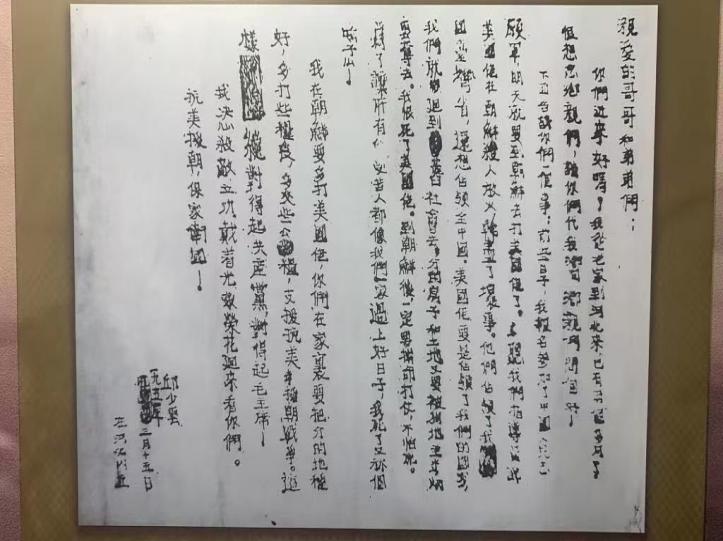 親愛的哥哥和弟弟們：
你們近來好嗎？我從老家到河北來，已有兩個多月了
很想念鄉親們，請你們代我向鄉親們問個好！
下面告訴你們一個事：前些日子，我報名參加了中國人民志
願軍，明天就要到朝鮮去打美國佬了。上級我們指導員說
美國佬在朝鮮殺人放火，幹盡了壞事。他們佔領了我
國台灣省，還想佔領全中國。美國佬要是佔領了我們的國家，
我們就要退到舊社會去。分的房子和土地又要被地主
奪去。我恨死了美國佬。到朝鮮後，一定勇猛打仗，不怕死。
為了讓所有 受苦人都像我們一家過上好日子，我死了又
算 了！
我在朝鮮要多打美國佬，你們在家裏要把分的地種
好，多打些糧食，多交些公糧，支援抗美援朝戰爭。這
樣 纔對得起共產黨，對得起毛主席！
我決心殺敵立功，戴着光榮花回來看你們。
抗美援朝，保家衛國！
邱少雲
一九五一年
三月十五日